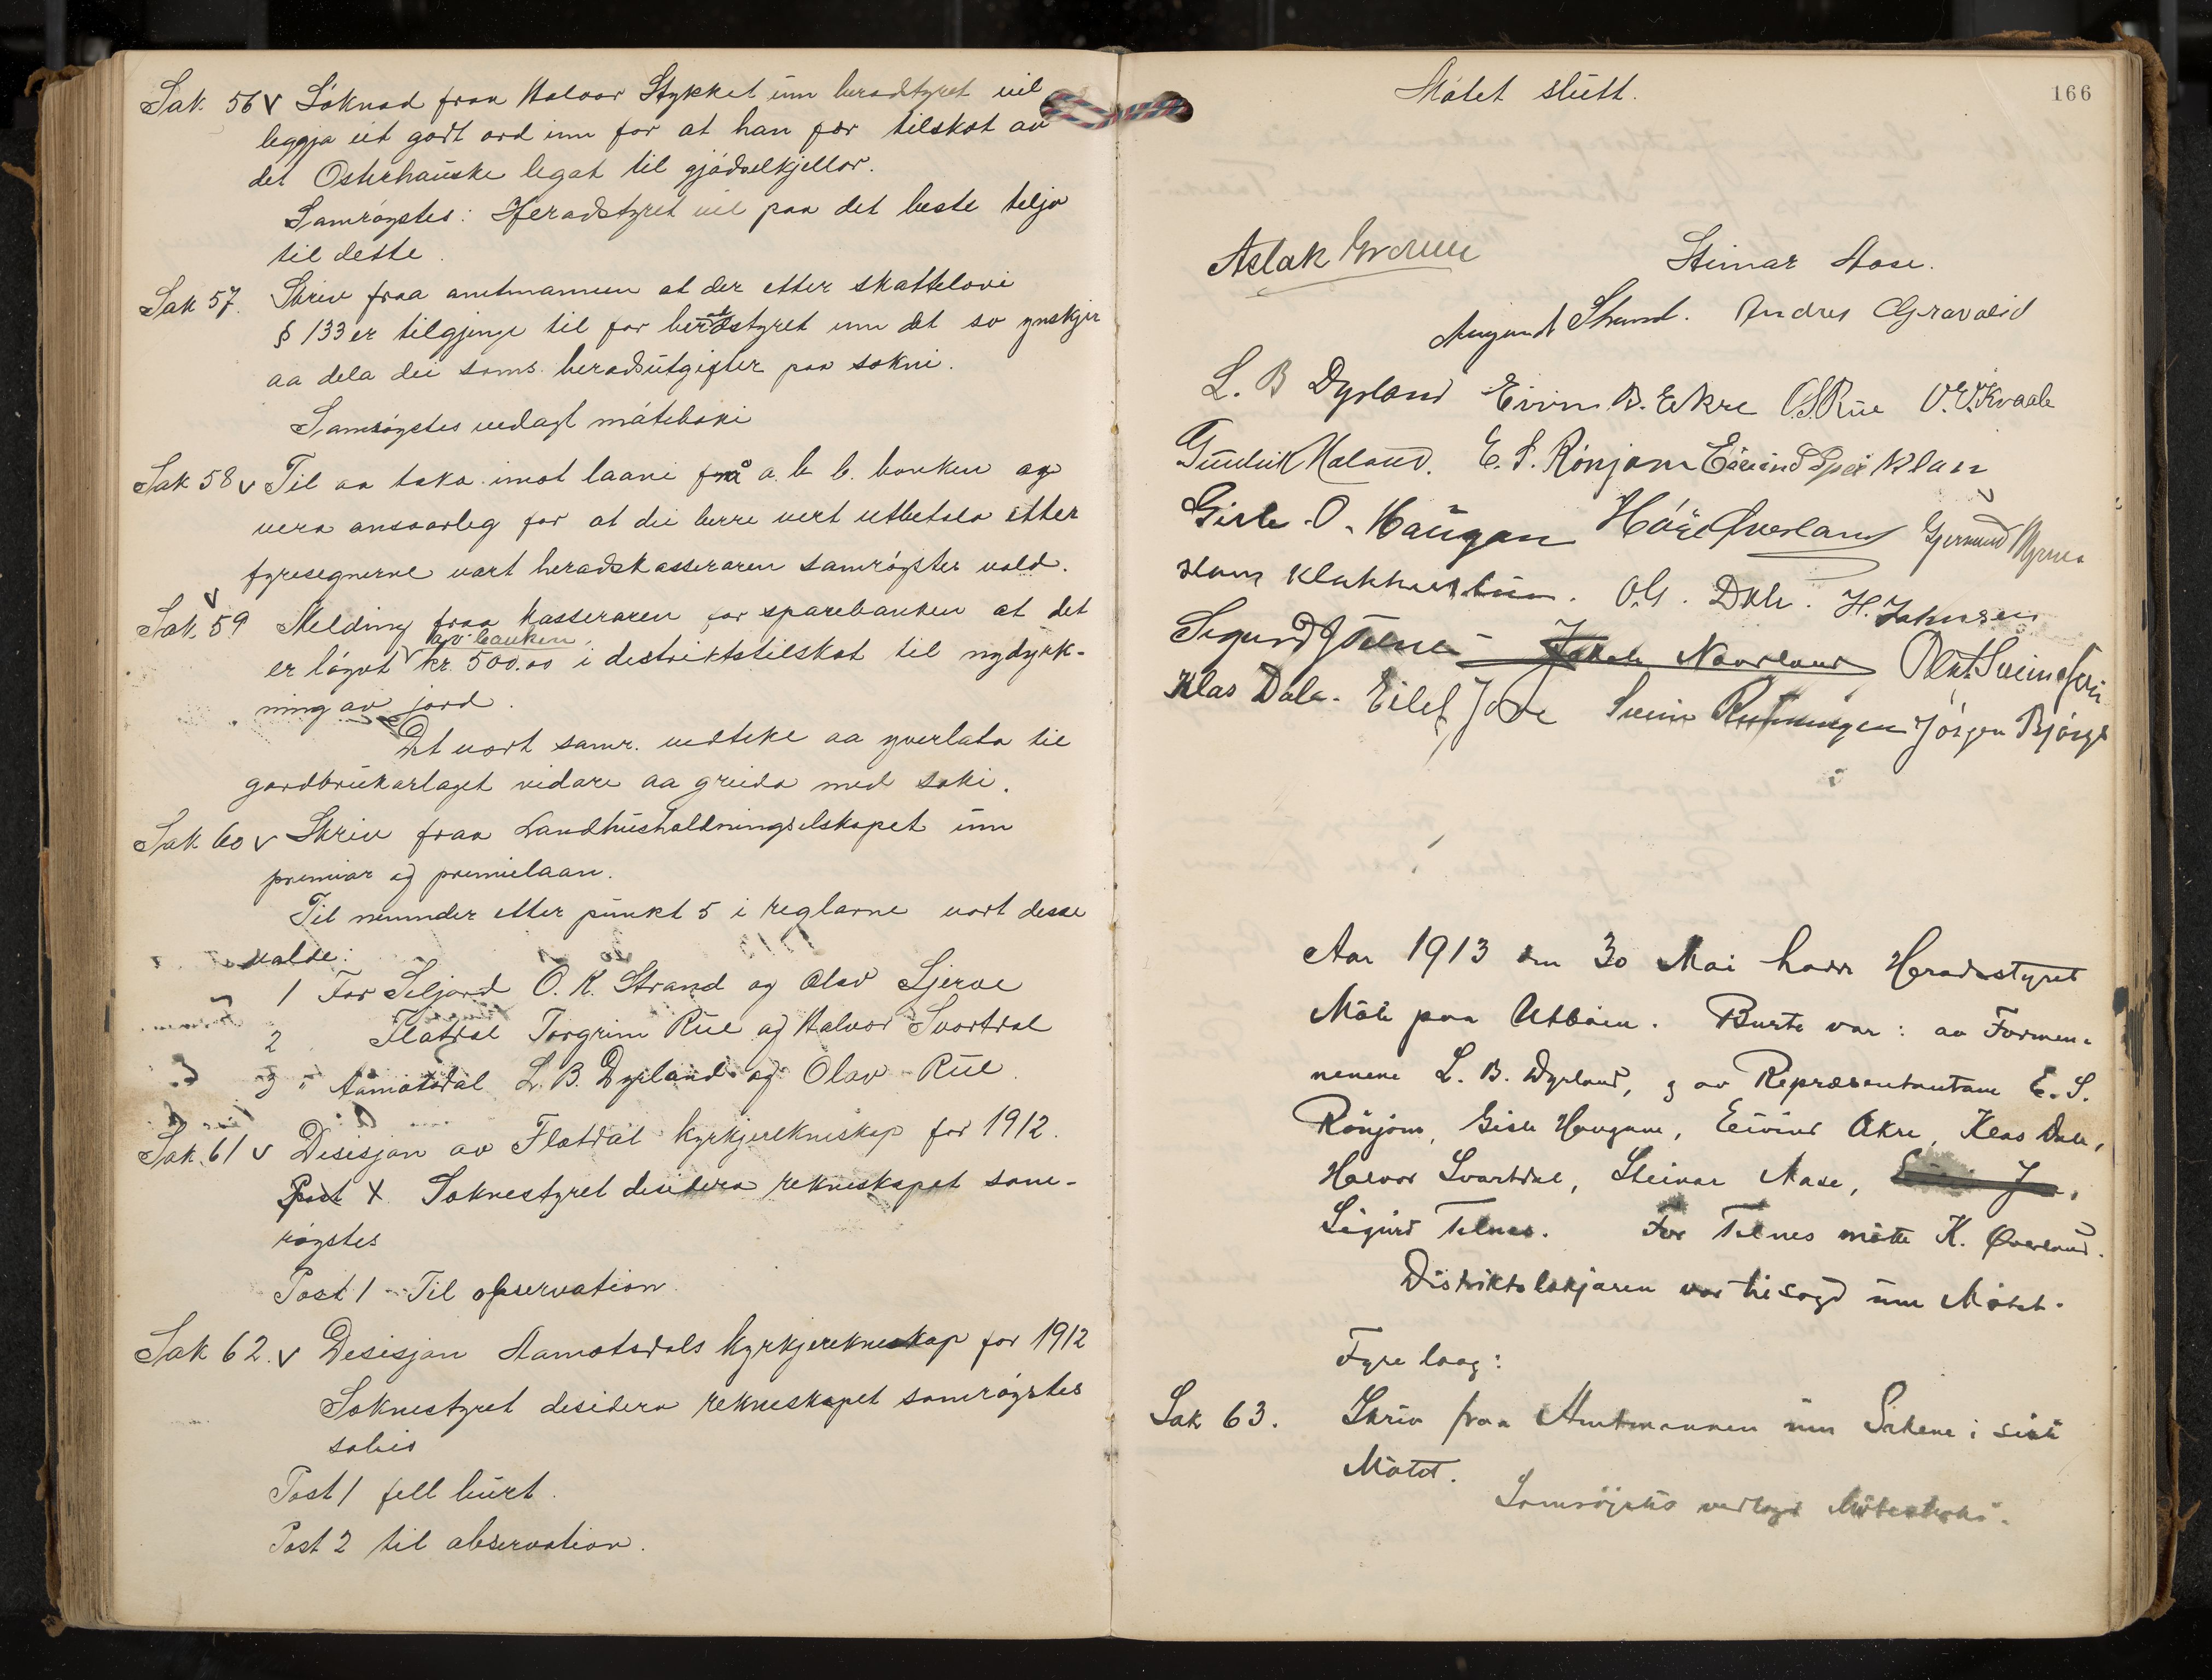 Sak 56 v Söknad fraa Halvor Stykket um heradstyret vil
leggja eit godt ord inn for at han fær tilskot av
det Osterhauske legat til gjödselkjellar.
Samröystes: Heradstyret vil paa det beste tilja
til dette.
Sak 57. Skriv fraa amtmannen at der etter skattelovi
§ 133 er tilgjenge til for heradstyret um det so ynskjer
aa dela dei sams heradsutgifter paa sokni.
Samröystes vedlagt möteboki
Sak 58 v Til aa taka imot laani frå a. b. b. banken og
vera ansvarleg for at dei berre vert utbetala etter
fyresegnerne vart heradskasseraren samröystes vald.
Sak 59 v Melding fraa kasseraren for sparebanken at det
av banken
er löyvt v kr. 500.00 i distriktstilskot til nydyrk-
ning av jord.
Det vart samr. vedteke aa yverlata til
gardbrukarlaget vidare aa greida med saki.
Sak 60 v Skriv fraa Landhusholdningselskapet um
premiar og premielaan.
Til nemnder etter punkt 5 i reglarne vart desse
valde:
1 For Seljord O. K. Strand og Olav Sjerve
2 Flatdal Torgrim Rue og Halvor Svortdal
3 " Aamotsdal L. B. Dyrland og Olav Rue.
Sak 61 v Desisjon av Flatdal kyrkjerekneskap for 1912.
Post X. Soknestyret desidera rekneskapet sam-
röystes
Post 1 - Til observation.
Sak 62. v Desisjon Aamotsdals kyrkjerekneskap for 1912
Soknestyret desidera rekneskapet samröystes
Post 1 fell burt.
Post 2 til observation.
Mötet slutt.
166
Aslak
Steinar Aase.
Augund Strand. Andres Gravalid
L. B Dyrland Eivin B. Ekre O.S.Rue O.E.Kvaale
Gunleik Haland. E. S. Rönjom Eivind
Gisle O. Haugan Höye Överland Gjermund
O. G. Dale. H. Johnsen
Sigurd Jakob Naadland Olav Sveins
Klas Dale. Eilef Jore Svein Rutningen Jörgen Björge
Aar 1913 den 30 Mai havr Heradsstyret
Möte paa Utböen. Burte var: av Formen-
nenene L. B. Dyrland, og av Repræsentantane E. S.
Rönjom, Gisle Haugane, Eivind Ækre, Klas Dale,
Halvor Svartdal, Steinar Aase,
Sigurd Telnes. For Telnes mötte K. Överland.
Distriktslækjaren var tilsagd um Mötet.
Fyre laag:
Sak 63. Skriv fraa Amtmannen um Sakene i siste
Mötet.
Samröystes vedlagt Möteboki.